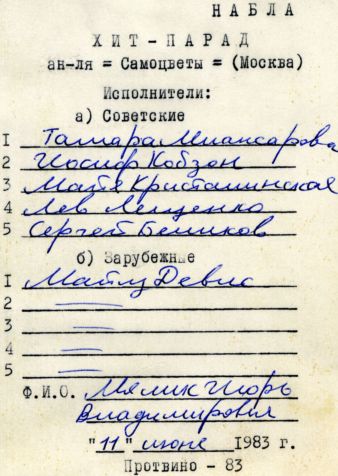 НАБЛА
ХИТ-ПАРАД
ан-ля = Самоцветы = (Москва)
Исполнители:
а) Советские
I Тамара Миансарова
2 Иосиф Кобзон
3 Майя Кристалинская
4 Лев Лещенко
5 Сергей Беликов
б) Зарубежные
I Майлз Девис
2 —
3 —
4 —
5 —
Ф.И.О. Мялик Игорь
Владимирович
"11" июня 1983 г.
Протвино - 83